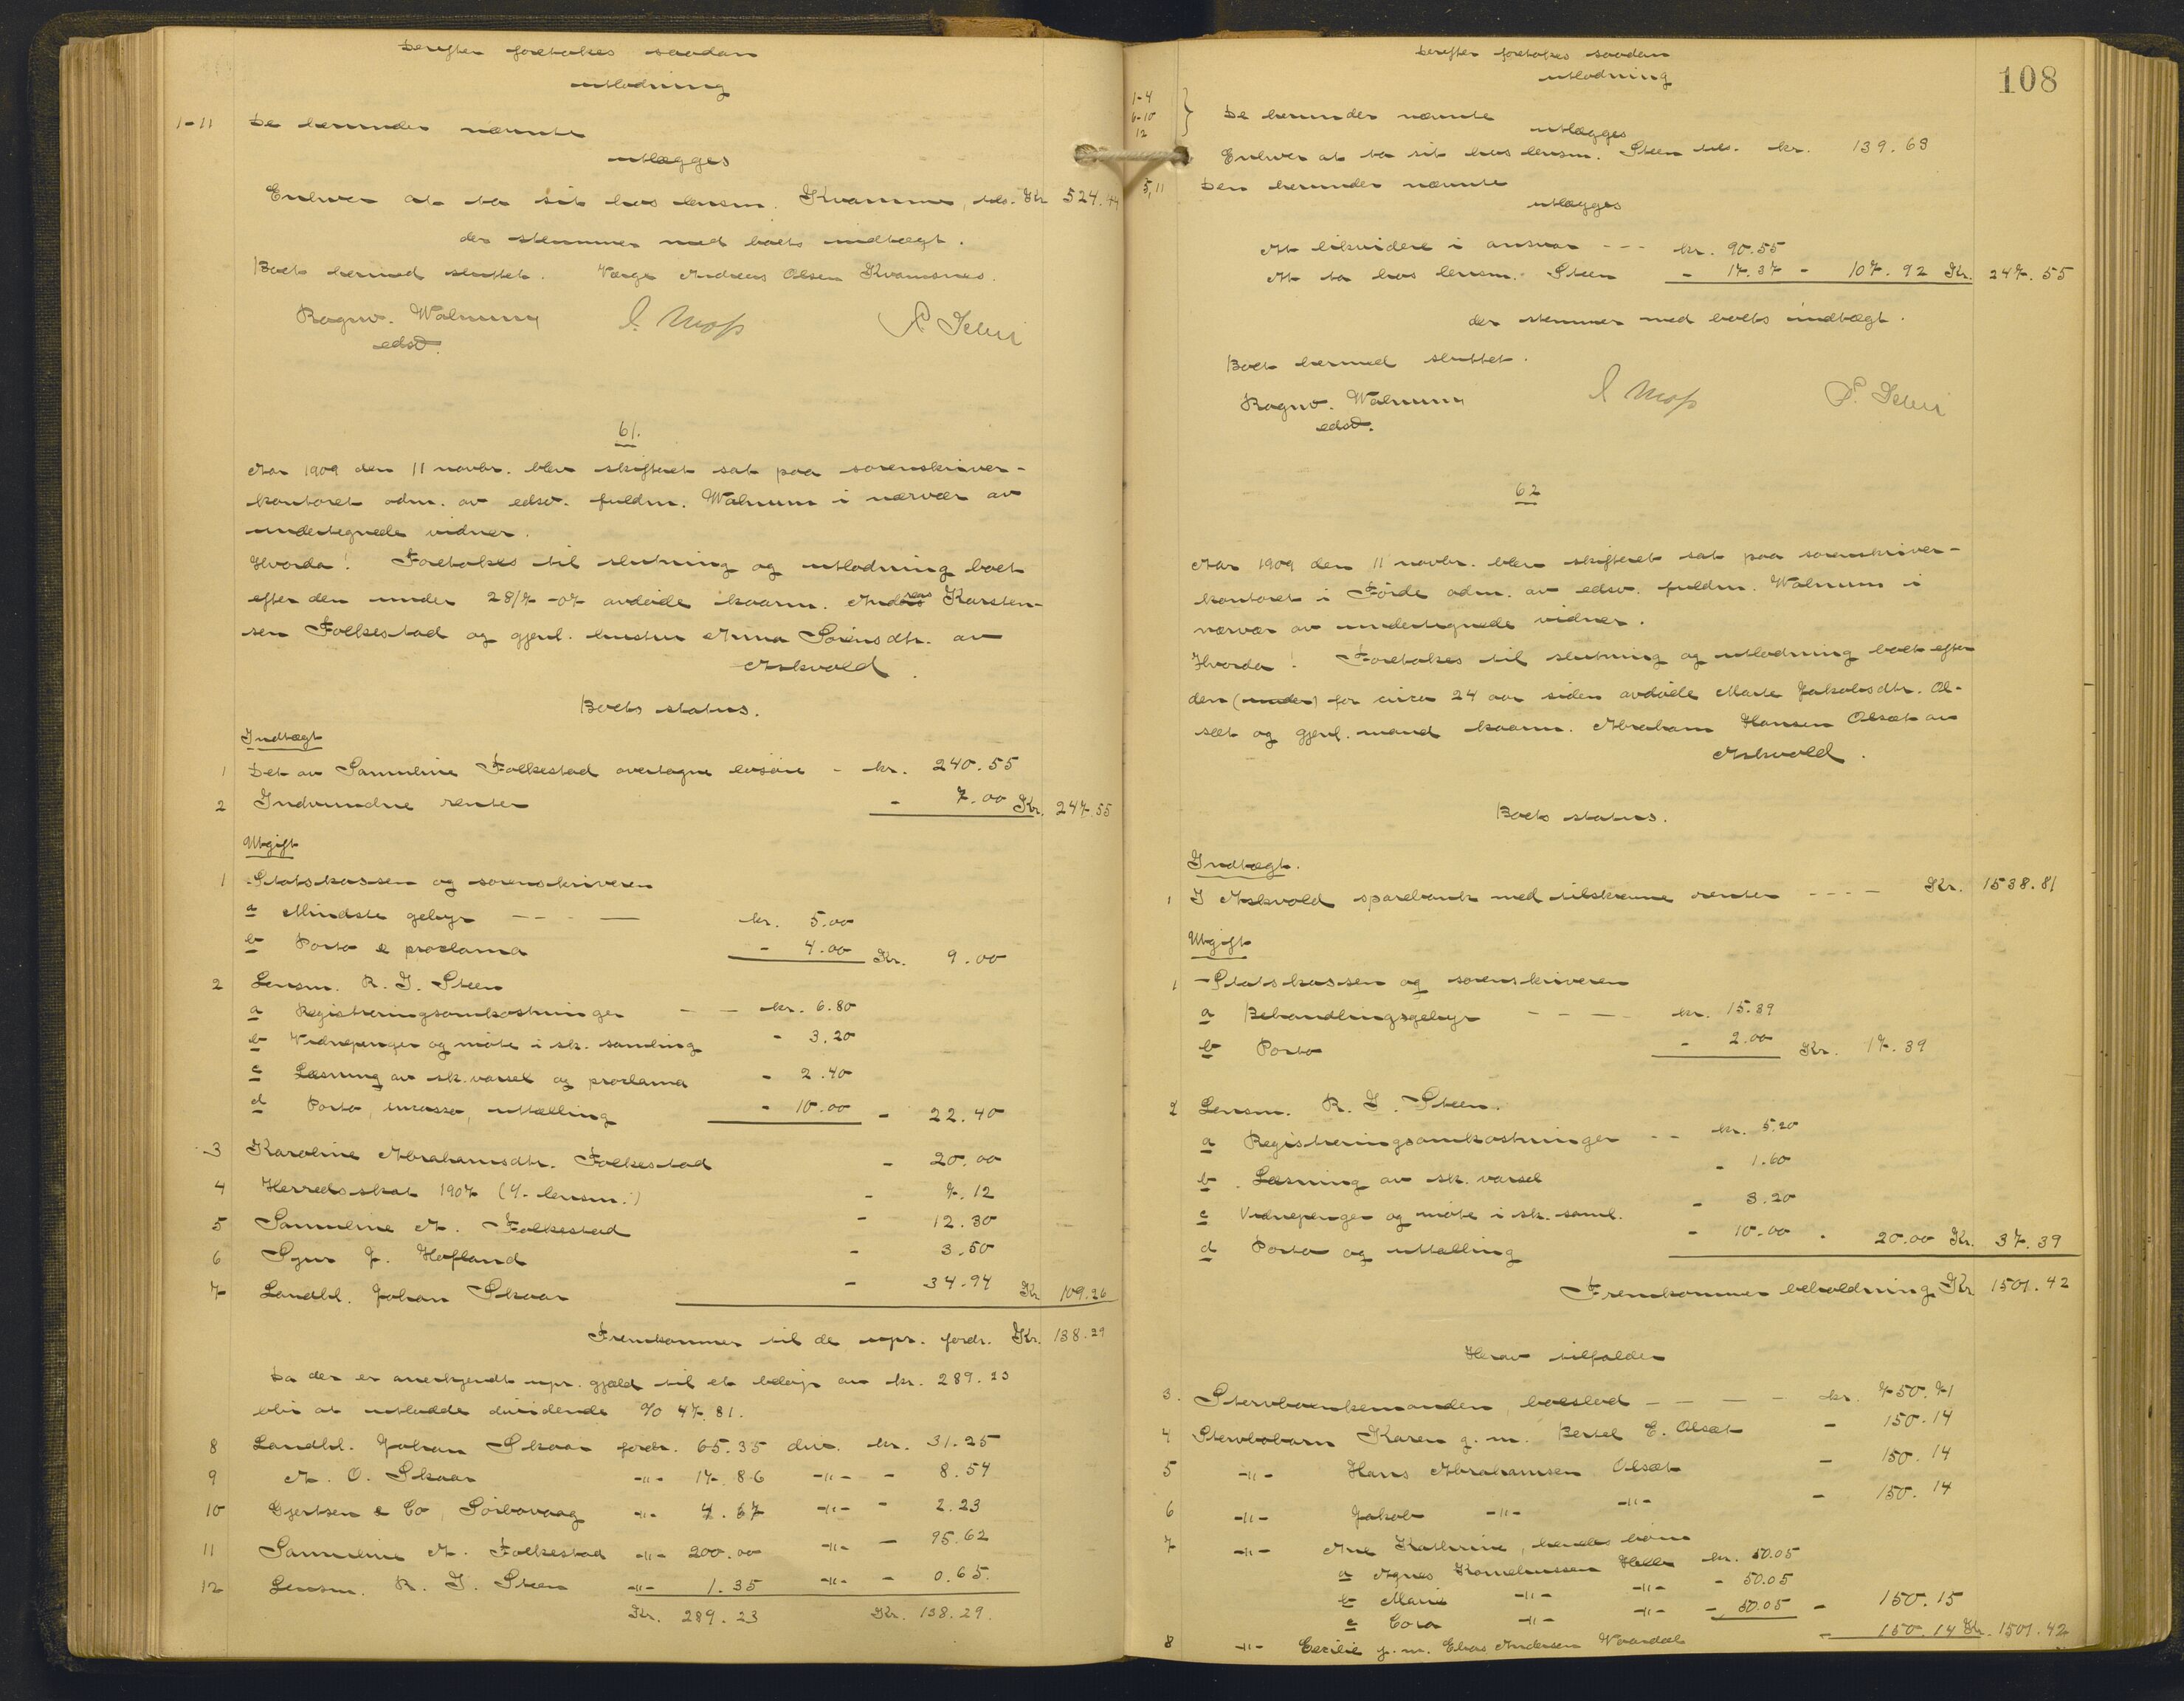 Derefter foretokes saadan
utlodning
1-11 De herunder nævnte
utlægges
Enhver at ta sit hos lensm. Kvamme, tils. Kr 524.44
der stemmer med boets indtægt.
Boet hermed sluttet. Værge Andreas Olsen Kvamsnes.
Ragnv. Walnum
edsv.
61.
Aar 1909 den 11 novbr. blev skifteret sat paa sorenskriver-
kontoret adm. av edsv. fuldm. Walnum i nærvær av
undertegnede vidner.
Hvorda! Foretokes til slutning og utlodning boet
efter den under 28/7-07 avdøde kaarm. Andreas Karsten-
sen Folkestad og gjenl. hustru Anna Sørensdtr. av
Askvold.
Boets status.
Indtægt
1 Det av Samuline Folkestad overtagne løsøre - kr. 240.55
2 Indvundne renter - 7.00 Kr. 247.55
Utgift
1 Statskassen og sorenskriveren
a Mindste gebyr - - - kr. 5.00
b Porto & proclama - 4.00 Kr. 9.00
2 Lensm. R. J. Steen
a Registreringsomkostninger - - kr. 6.80
b Vidnepenger og møte i sk. samling - 3.20
c Læsning av sk. varsel og proclama - 2.40
d Porto, incasso, uttælling - 10.00 - 22.40
3 Karoline Abrahamsdtr. Folkestad - 20.00
4 Herredsskat 1907 (v. lensm.) - 7.12
5 Samuline A. Folkestad - 12.30
6 J. Hofland - 3.50
7 Landhl. Johan Skaar - 34.94 Kr 109.26
Fremkommer til de upr. fordr. Kr. 138.29
Da der er anerkjendt upr. gjæld til et beløp av kr. 289.23
blir at utlodde dividende % 47.81.
8 Landhl. Johan Skaar fordr. 65.35 div. kr. 31.25
9 A. O. Skaar -"- 17.86 -"- - 8.54
10 Gjertsen & Co, Sørbøvaag -"- 4.67 -"- - 2.23
11 Samuline A. Folkestad -"- 200.00 -"- - 95.62
12 Lensm. R. J. Steen -"- 1.35 -"- - 0.65.
Kr. 289.23 Kr. 138.29.
108
Derefter foretokes saadan
utlodning
1-4
6-10
12 } De herunder nævnte
utlægges
Enhver at ta sit hos lensm. Steen tils. kr. 139.63
5, 11 Den herunder nævnte
utlægges
At likvidere i ansvar - - - kr. 90.55
At ta hos lensm. Steen - 17.37 - 107.92 Kr. 247.55
der stemmer med boets indtægt.
Boet hermed sluttet.
Ragnv. Walnum
edsv.
62
Aar 1909 den 11 novbr. blev skifteret sat paa sorenskriver-
kontoret i Førde adm. av edsv. fuldm. Walnum i
nærvær av undertegnede vidner.
Hvorda! Foretokes til slutning og utlodning boet efter
den (under) for circa 24 aar siden avdøde Marte Jakobsdtr. Ol-
sæt og gjenl. mand kaarm. Abraham Hansen Olsæt av
Askvold.
Boets status.
Indtægt.
1 I Askvold sparebank med tilskrevne renter - - - - Kr. 1538.81
Utgift
1 Statskassen og sorenskriveren
a Behandlingsgebyr - - - - kr. 15.39
b Porto - 2.00 Kr. 17.39
2 Lensm. R. J. Steen.
a Registreringsomkostninger - - kr. 5.20
b Læsning av sk. varsel - 1.60
c Vidnepenger og møte i sk. saml. - 3.20
d Porto og uttælling - 10.00 - 20.00 Kr. 37.39
Fremkommer beholdning Kr 1501.42
Herav tilfalder
3. Stervboenkemanden, boeslod - - - kr. 750.71
4 Stervbobarn Karen g. m. Bertel E. Olsæt - 150.14
5 -"- Hans Abrahamsen Olsæt - 150.14
6 -"- Jakob -"- -"- - 150.14
7 -"- Ane Kathrine, hendes børn
a Agnes Korneliussen Helle kr. 50.05
b Marie -"- -"- - 50.05
c Cora -"- -"- - 50.05 - 150.15
8 -"- Cecilie g. m. Elias Andersen Waardal - 150.14 Kr. 1501.42